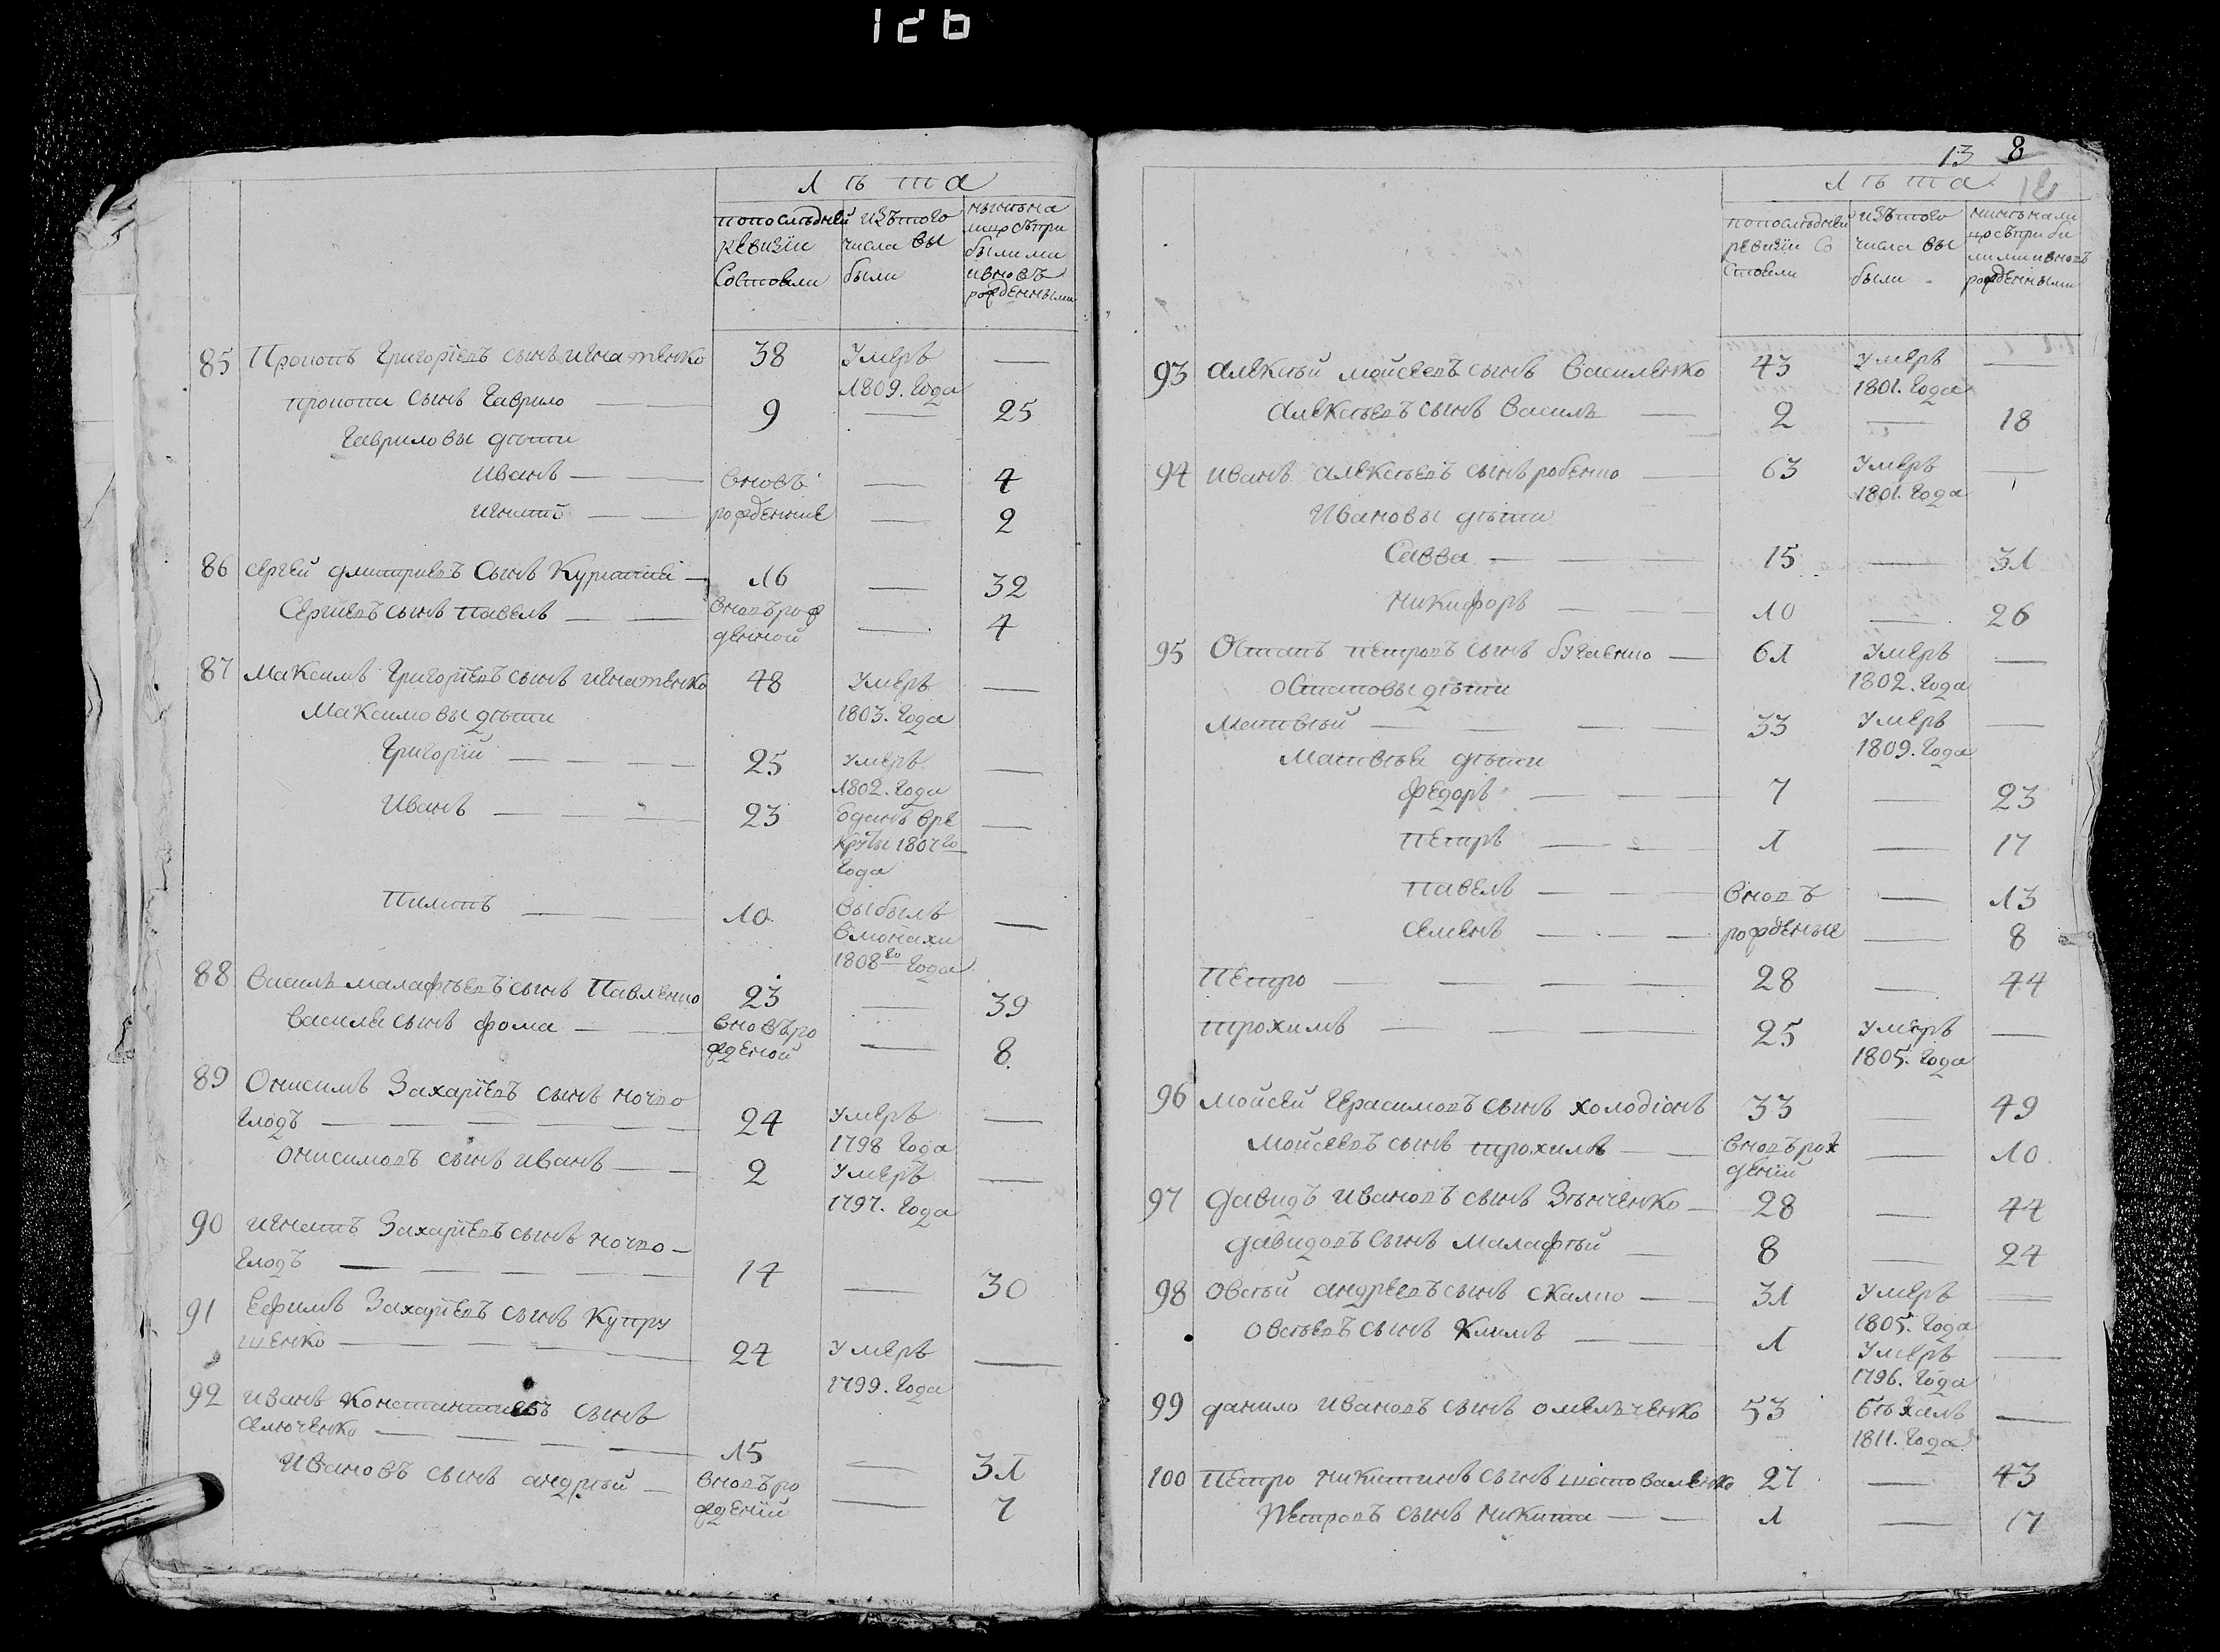 126
Лѣта
попослѣдней ревизіи Состояли
изътого числа вы были
нынѣна лицо съпри былыми ивновь рожденными
85 Прокопъ Григоріевъ сынъ игнатенко 38 Умеръ 1809. Года —
прокопа сынъ Гаврило 9 — 25
Гавриловы дѣти
иванъ — вновь — 4
игнатъ — рожденние — 2
86 сергей дмитриевъ сынъ 16 — 32
Сергиевъ сынъ павелъ вновърож денной — 4
87 Максимъ Григоріевъ сынъ игнатенко 48 Умеръ 1803. Года —
Максимовы дѣти
Григорій 25 Умеръ 1802. Года —
Иванъ 23 Отданъ вре круты 1807го Года —
Пилипъ 10 выбылъ вмонахи 1808го Года —
88 Василь малафѣевъ сынъ Павленко 23 — 39
Василя сынъ фома вновъро жденой — 8
89 Онисимъ Захаріевъ сынъ мочко
Глодъ 24 Умеръ 1798 Года —
онисимовъ сынъ иванъ 2 Умеръ 1797. Года —
90 игнатъ Захаріевъ сынъ мочко
Глодъ 14 — 30
91 Ефимъ Захаріевъ сынъ Купру
шенко 24 Умеръ 1799. Года —
92 иванъ Константиевъ сынъ
Семюченко 15 — 31
Ивановъ сынъ андрѣй вновъро жденій — 7
13 8
12
Лѣта
попослѣдней ревизіи Со стояли
изътого числа вы были
нинѣнали цосъприби лимиивновь рожденными
93 алексѣй мойсеевъ сынъ Василенко 43 Умеръ 1801. Года —
алексѣевъ сынъ Василь 2 — 18
94 иванъ алексѣевъ сынъ рябенко 63 Умеръ 1801. Года —
Ивановы дѣти
Савва 15 — 31
никифоръ 10 — 26
95 Остапъ петровъ сынъ бугаенко 61 Умеръ 1802. Года —
остаповы дѣти
матвѣй 33 Умеръ 1809. Года —
Матвѣя дѣти
федоръ 7 — 23
петръ 1 — 17
павелъ вновъ — 13
семенъ рожденые — 8
петро 28 — 44
трохимъ 25 Умеръ 1805. Года —
96 мойсей Герасимовъ сынъ холодіонъ 33 — 49
мойсеевъ сынъ трохимъ вновърож деній — 10
97 давидъ ивановъ сынъ Зѣнченко 28 — 44
давидовъ сынъ малафѣй 8 — 24
98 овсѣй андреевъ сынъ скалко 31 Умеръ 1805. Года —
овсѣевъ сынъ климъ 1 Умеръ 1796. Года —
99 данило ивановъ сынъ омельченко 53 бѣжалъ 1811. Года —
100 Петро никитинъ сынъ шаповаленко 27 — 43
петровъ сынъ никита 1 — 17